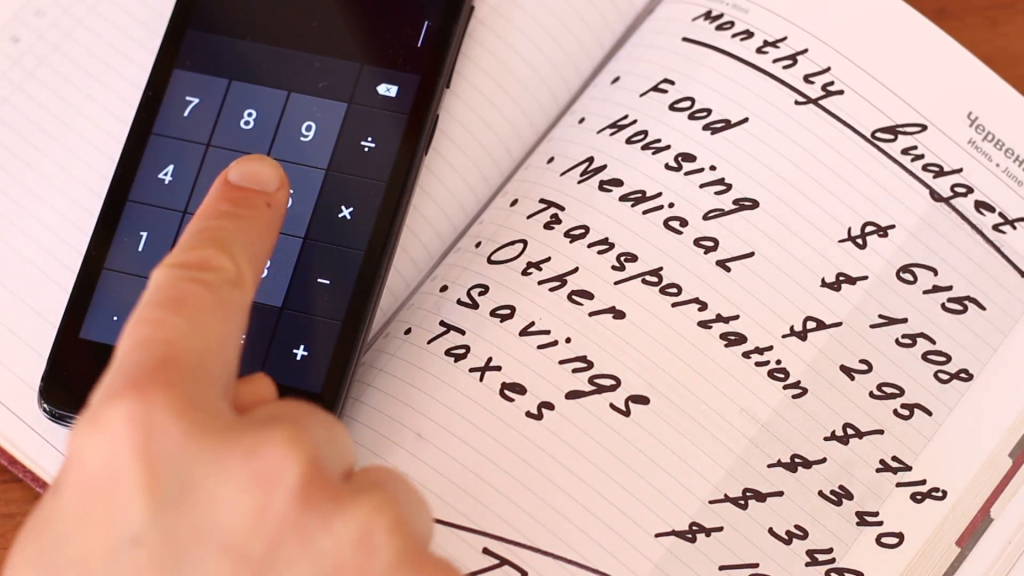 Monthly Budget
Червень
Июнь • June
• Food $ 615
• Housing $ 1508
• Medical $ 295
• Transportation $ 718
• Other $ 340
• Savings $
• Taxes $
7 8 9 ÷
4 ×
1 −
. +